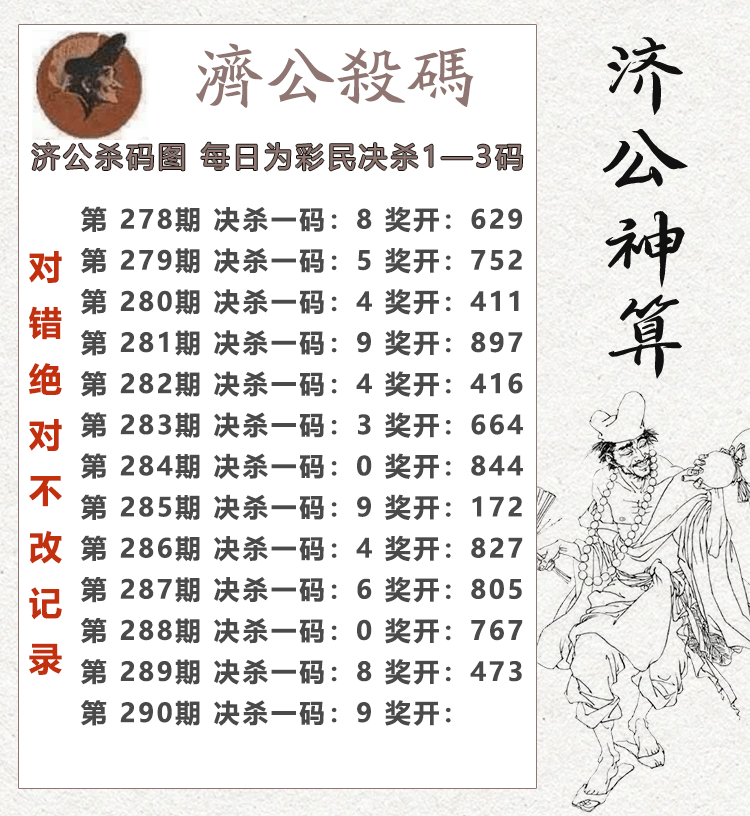 濟公殺碼
济公杀码图 每日为彩民决杀1—3码
第 278期 决杀一码：8 奖开：629
第 279期 决杀一码：5 奖开：752
第 280期 决杀一码：4 奖开：411
第 281期 决杀一码：9 奖开：897
第 282期 决杀一码：4 奖开：416
第 283期 决杀一码：3 奖开：664
第 284期 决杀一码：0 奖开：844
第 285期 决杀一码：9 奖开：172
第 286期 决杀一码：4 奖开：827
第 287期 决杀一码：6 奖开：805
第 288期 决杀一码：0 奖开：767
第 289期 决杀一码：8 奖开：473
第 290期 决杀一码：9 奖开：
对错绝对不改记录
济公神算